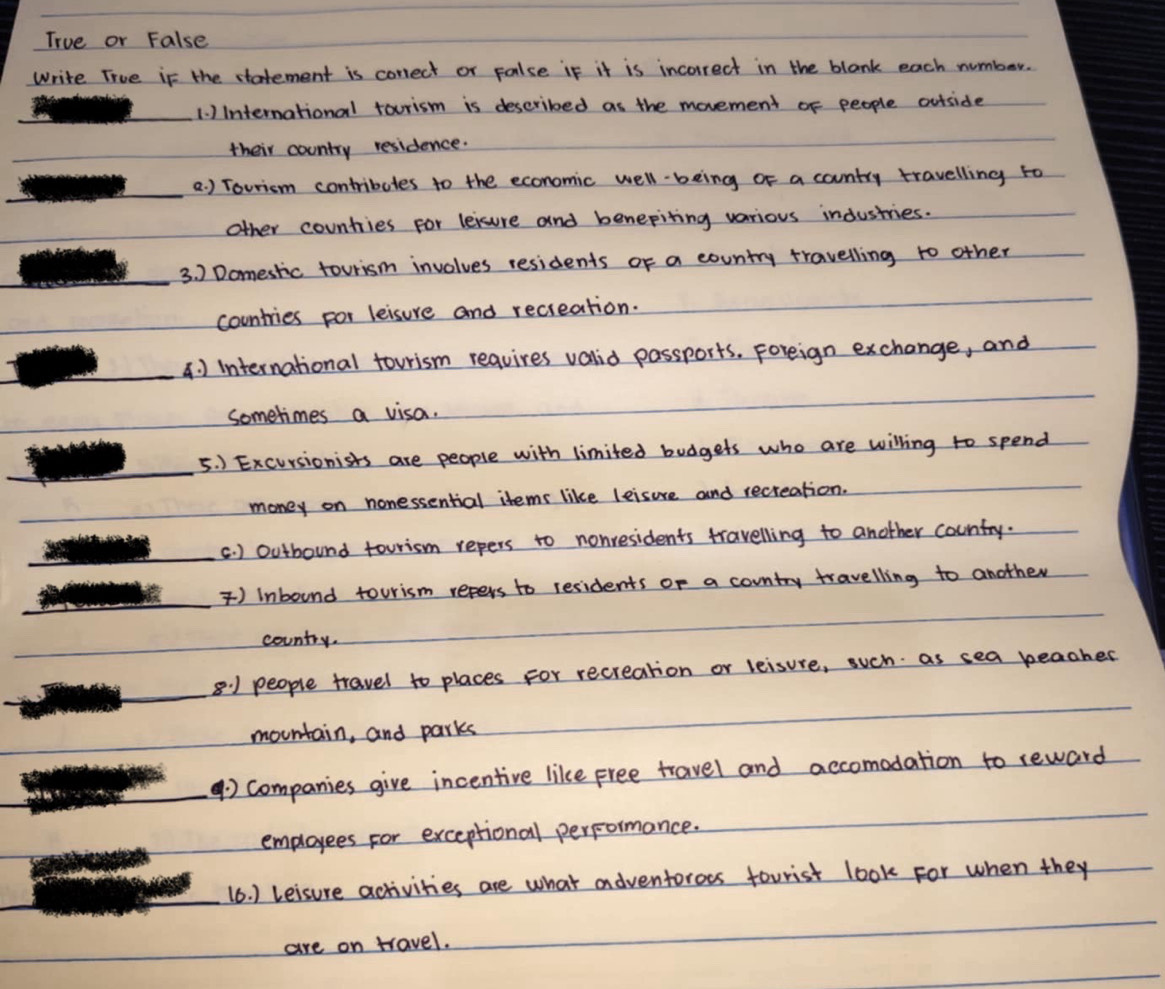 True or False
Write True if the statement is correct or False if it is incorrect in the blank each number.
1.) International tourism is described as the movement of people outside
their country residence.
2.) Tourism contributes to the economic well-being of a country travelling to
other countries for leisure and benefiting various industries.
3.) Domestic tourism involves residents of a country travelling to other
countries for leisure and recreation.
4.) International tourism requires valid passports. Foreign exchange, and
sometimes a visa.
5.) Excursionists are people with limited budgets who are willing to spend
money on nonessential items like leisure and recreation.
6.) Outbound tourism refers to nonresidents travelling to another country.
7.) Inbound tourism refers to residents of a country travelling to another
country.
8.) people travel to places for recreation or leisure, such as sea beaches
mountain, and parks
9.) Companies give incentive like free travel and accomodation to reward
employees for exceptional performance.
10.) Leisure activities are what adventoroos tourist look for when they
are on travel.